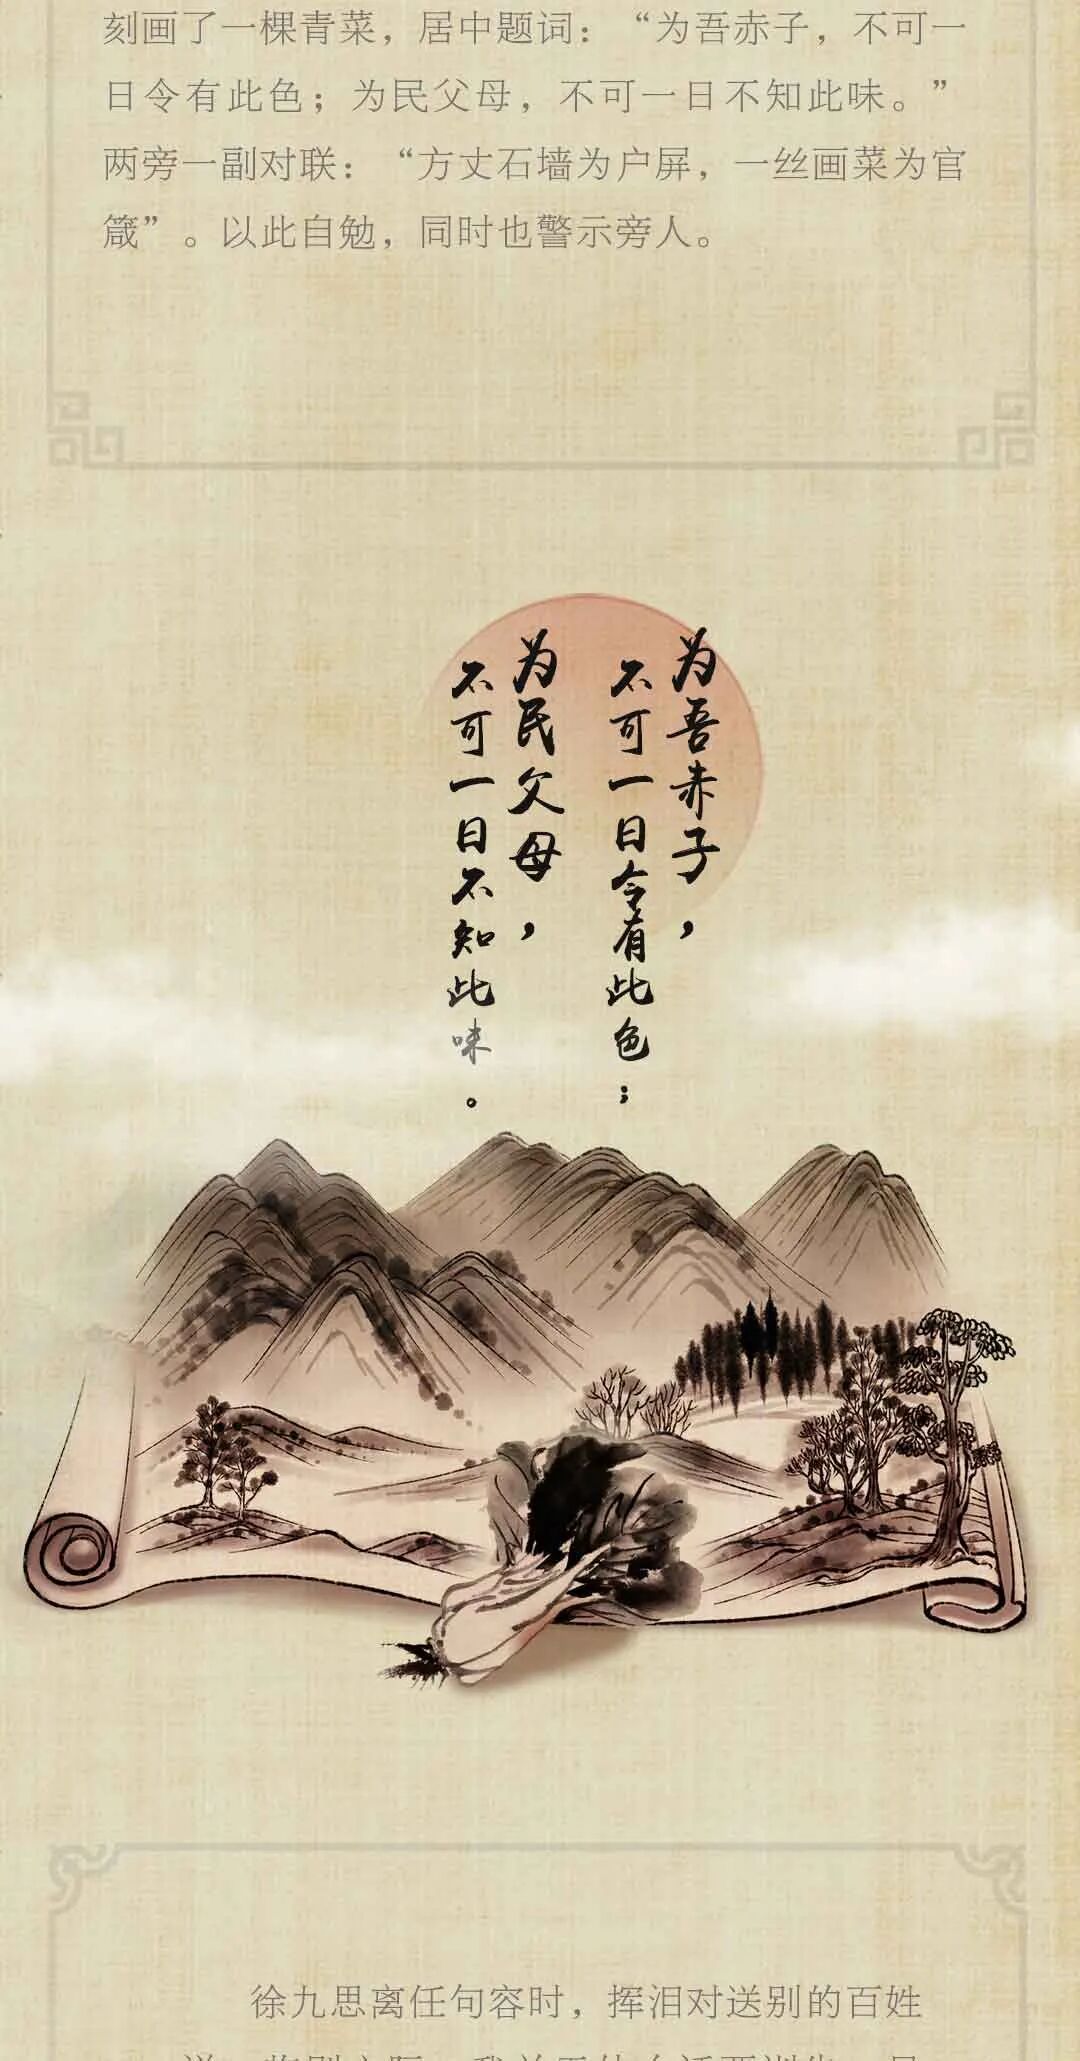 刻画了一棵青菜，居中题词：“为吾赤子，不可一
日令有此色；为民父母，不可一日不知此味。”
两旁一副对联：“方丈石墙为户屏，一丝画菜为官
箴”。以此自勉，同时也警示旁人。
为吾赤子，
不可一日令有此色；
为民父母，
不可一日不知此味。
徐九思离任句容时，挥泪对送别的百姓